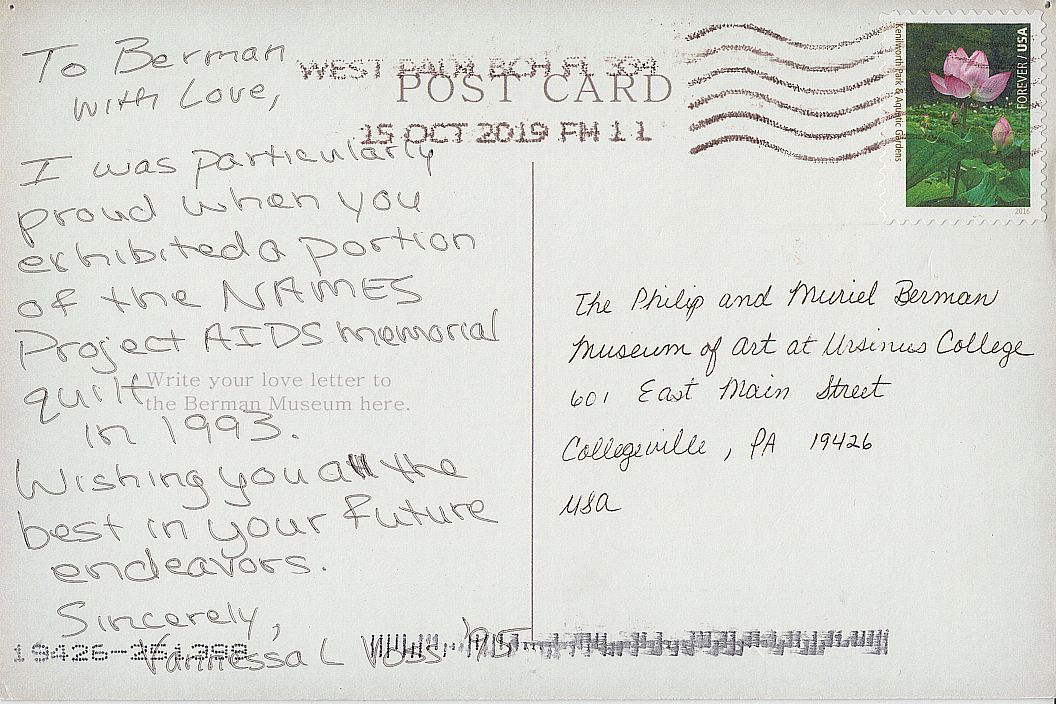 To Berman
with Love,
I was particularly
proud when you
exhibited a portion
of the NAMES
Project AIDS memorial
quilt
in 1993.
Wishing you all the
best in your future
endeavors.
Sincerely,
Vannessa L Voss '95
Write your love letter to
the Berman Museum here.
WEST PALM BCH FL 334
POST CARD
15 OCT 2019 PM 1 1
Kenilworth Park & Aquatic Gardens
FOREVER / USA
2016
The Philip and Muriel Berman
Museum of Art at Ursinus College
601 East Main Street
Collegeville, PA 19426
USA